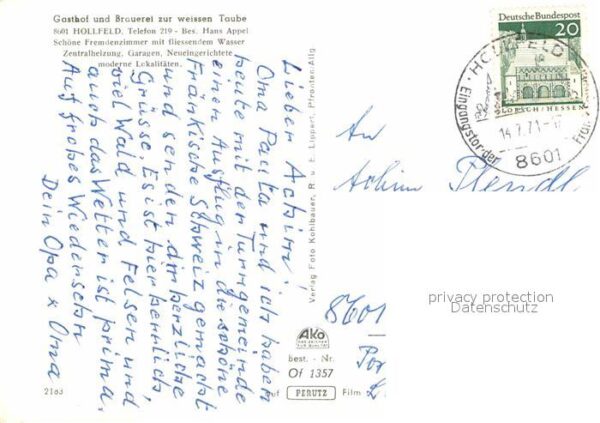 Gasthof und Brauerei zur weissen Taube
8601 HOLLFELD, Telefon 219 - Bes. Hans Appel
Schöne Fremdenzimmer mit fliessendem Wasser
Zentralheizung, Garagen, Neueingerichtete
moderne Lokalitäten.
Lieber Achim!
Oma Paula und ich haben
heute mit der Turngemeinde
einen Ausflug in die schöne
Fränkische Schweiz gemacht
und senden dir herzliche
Grüsse. Es ist hier herrlich,
viel Wald und Felsen und
auch das Wetter ist prima.
Auf frohes Wiedersehn
Dein Opa x Oma
2183
Verlag Foto Kohlbauer, R. u. E. Lippert, Pfronten/Allg
Deutsche Bundespost
20
LORSCH/HESSEN
HOLLFELD
Eingangstor der
14.7.71-17
8601
An
Achim
8601
privacy protection
Datenschutz
Ako
best. - Nr.
Of 1357
auf PERUTZ Film